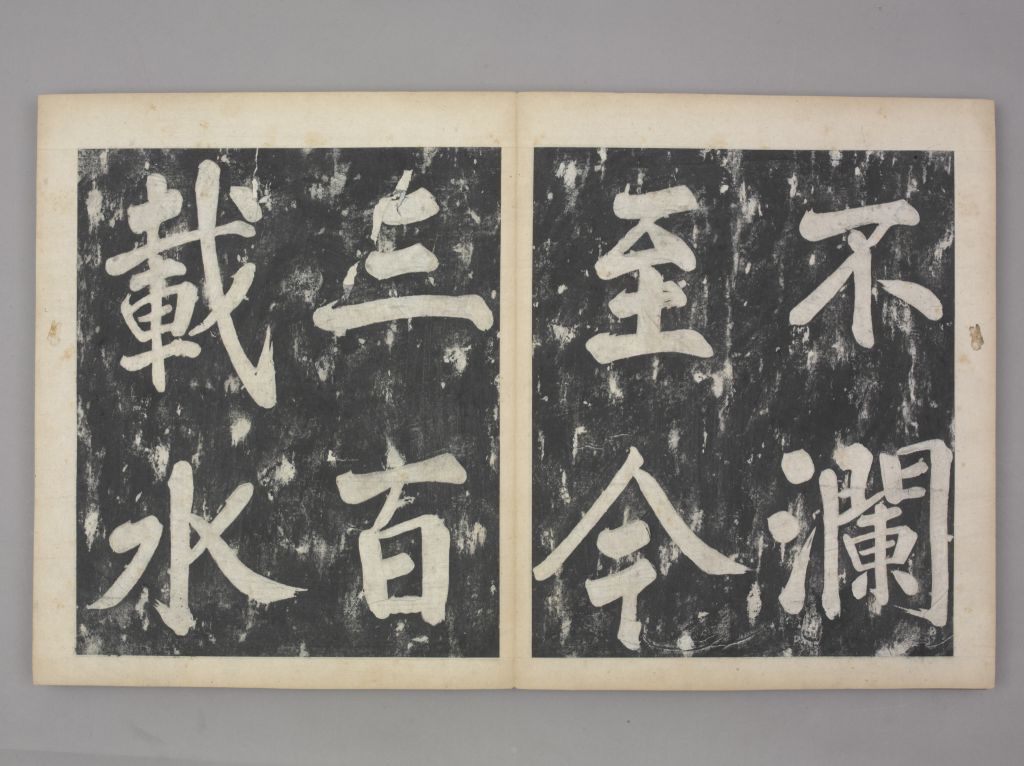 不瀾
至今
三百
載水